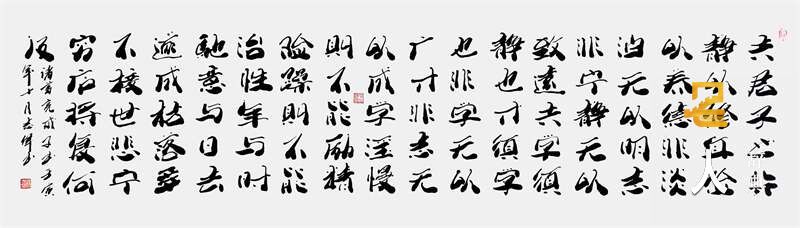 夫君子之行
静以修身俭
以养德非淡
泊无以明志
非宁静无以
致远夫学须
静也才须学
也非学无以
广才非志无
以成学淫慢
则不能励精
险躁则不能
治性年与时
驰意与日去
遂成枯落多
不接世悲守
穷庐将复何
及
诸葛亮诫子书
年十月